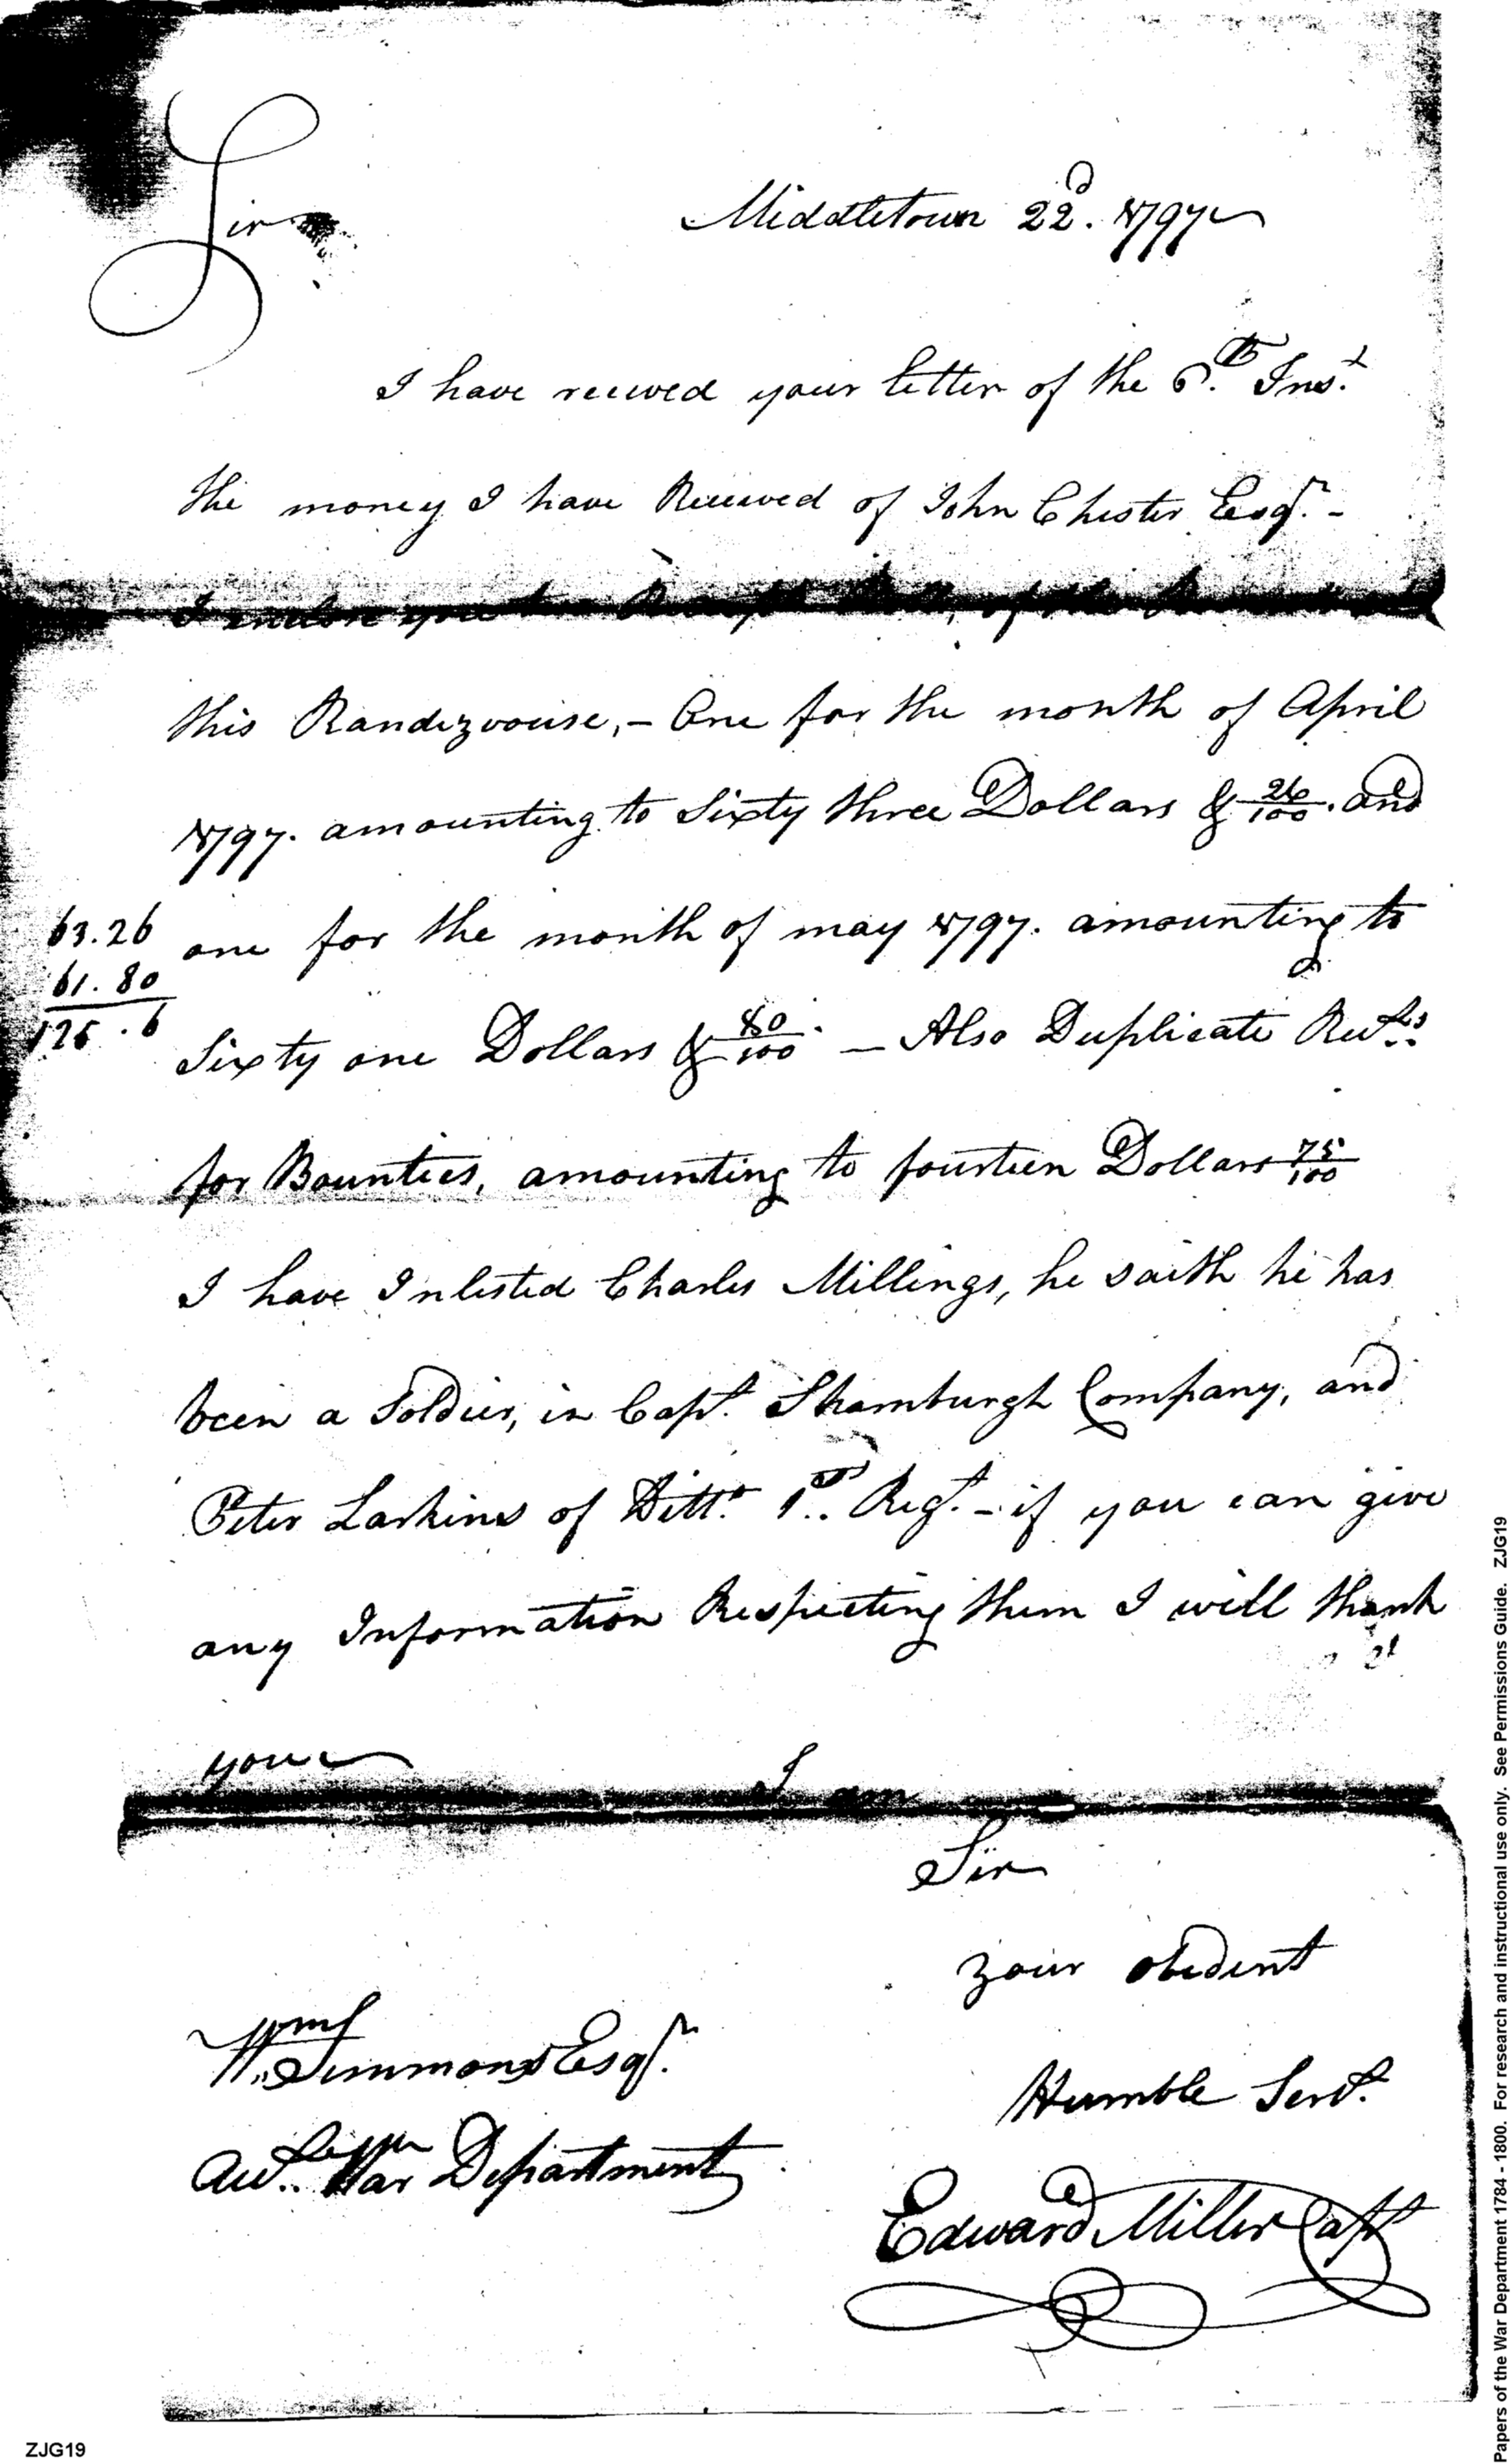 Sir
Middletown 22d. 1797
I have recived your letter of the 6.th Inst.
the money I have Recieved of John Chester Esqr. -
I enclose you two of the
this Randezvouse, - One for the month of April
1797. amounting to Sixty three Dollars & 26/100. and
one for the month of may 1797. amounting to
63.26
61.80
125.6
Sixty one Dollars & 80/100. — Also Duplicate Rects.
for Bounties, amounting to fourteen Dollars 75/100
I have Inlisted Charles Millings, he saith he has
been a Soldier, in Capt. Shamburgh Company, and
Peter Larkins of Ditto. 1st. Regt. - if you can give
any Information Respecting them I will thank
you
I am
Sir
your obedent
Humble Servt.
Edward Miller Capt
Wm. Simmons Esqr.
War Department
ZJG19
Papers of the War Department 1784 - 1800. For research and instructional use only. See Permissions Guide. ZJG19